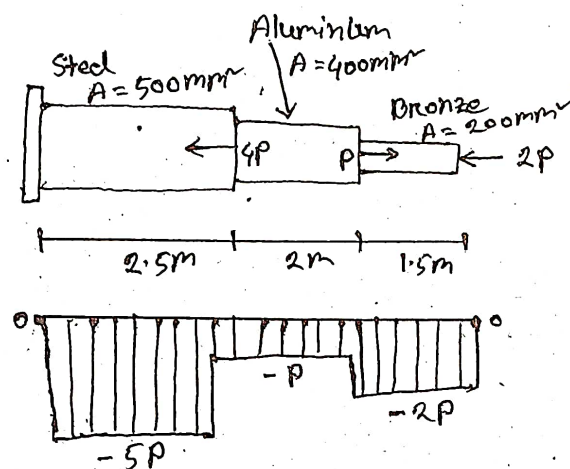 Aluminium
A=400mm²
Steel
A=500mm²
Bronze
A=200mm²
4P
P
2P
2.5m
2m
1.5m
0
0
-P
-2P
-5P